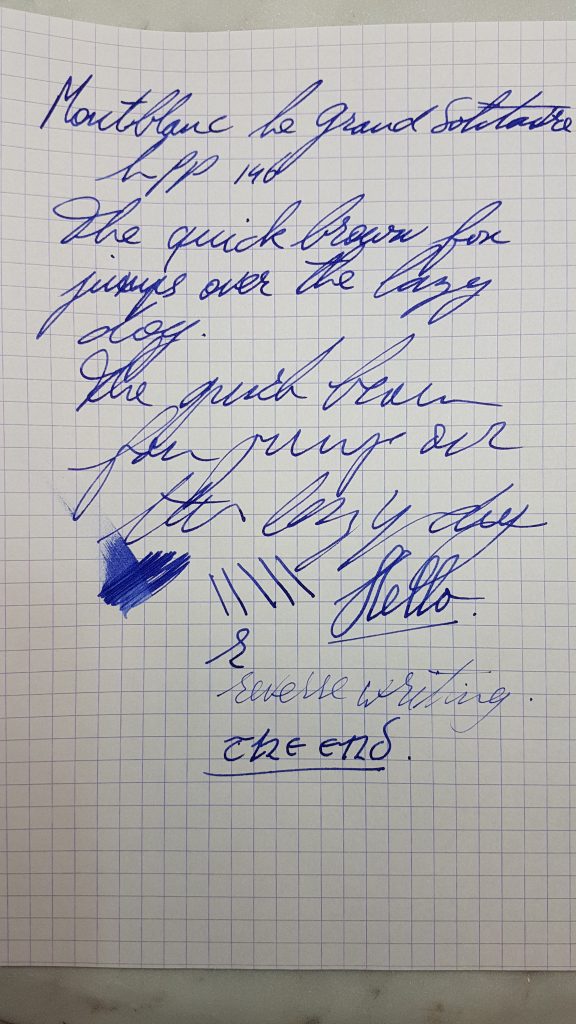 Montblanc Le Grand Solitaire
LPP 146
The quick brown fox
jumps over the lazy
dog.
The quick brown
fox jumps over
the lazy dog
Hello.
R
reverse writing.
THE END.